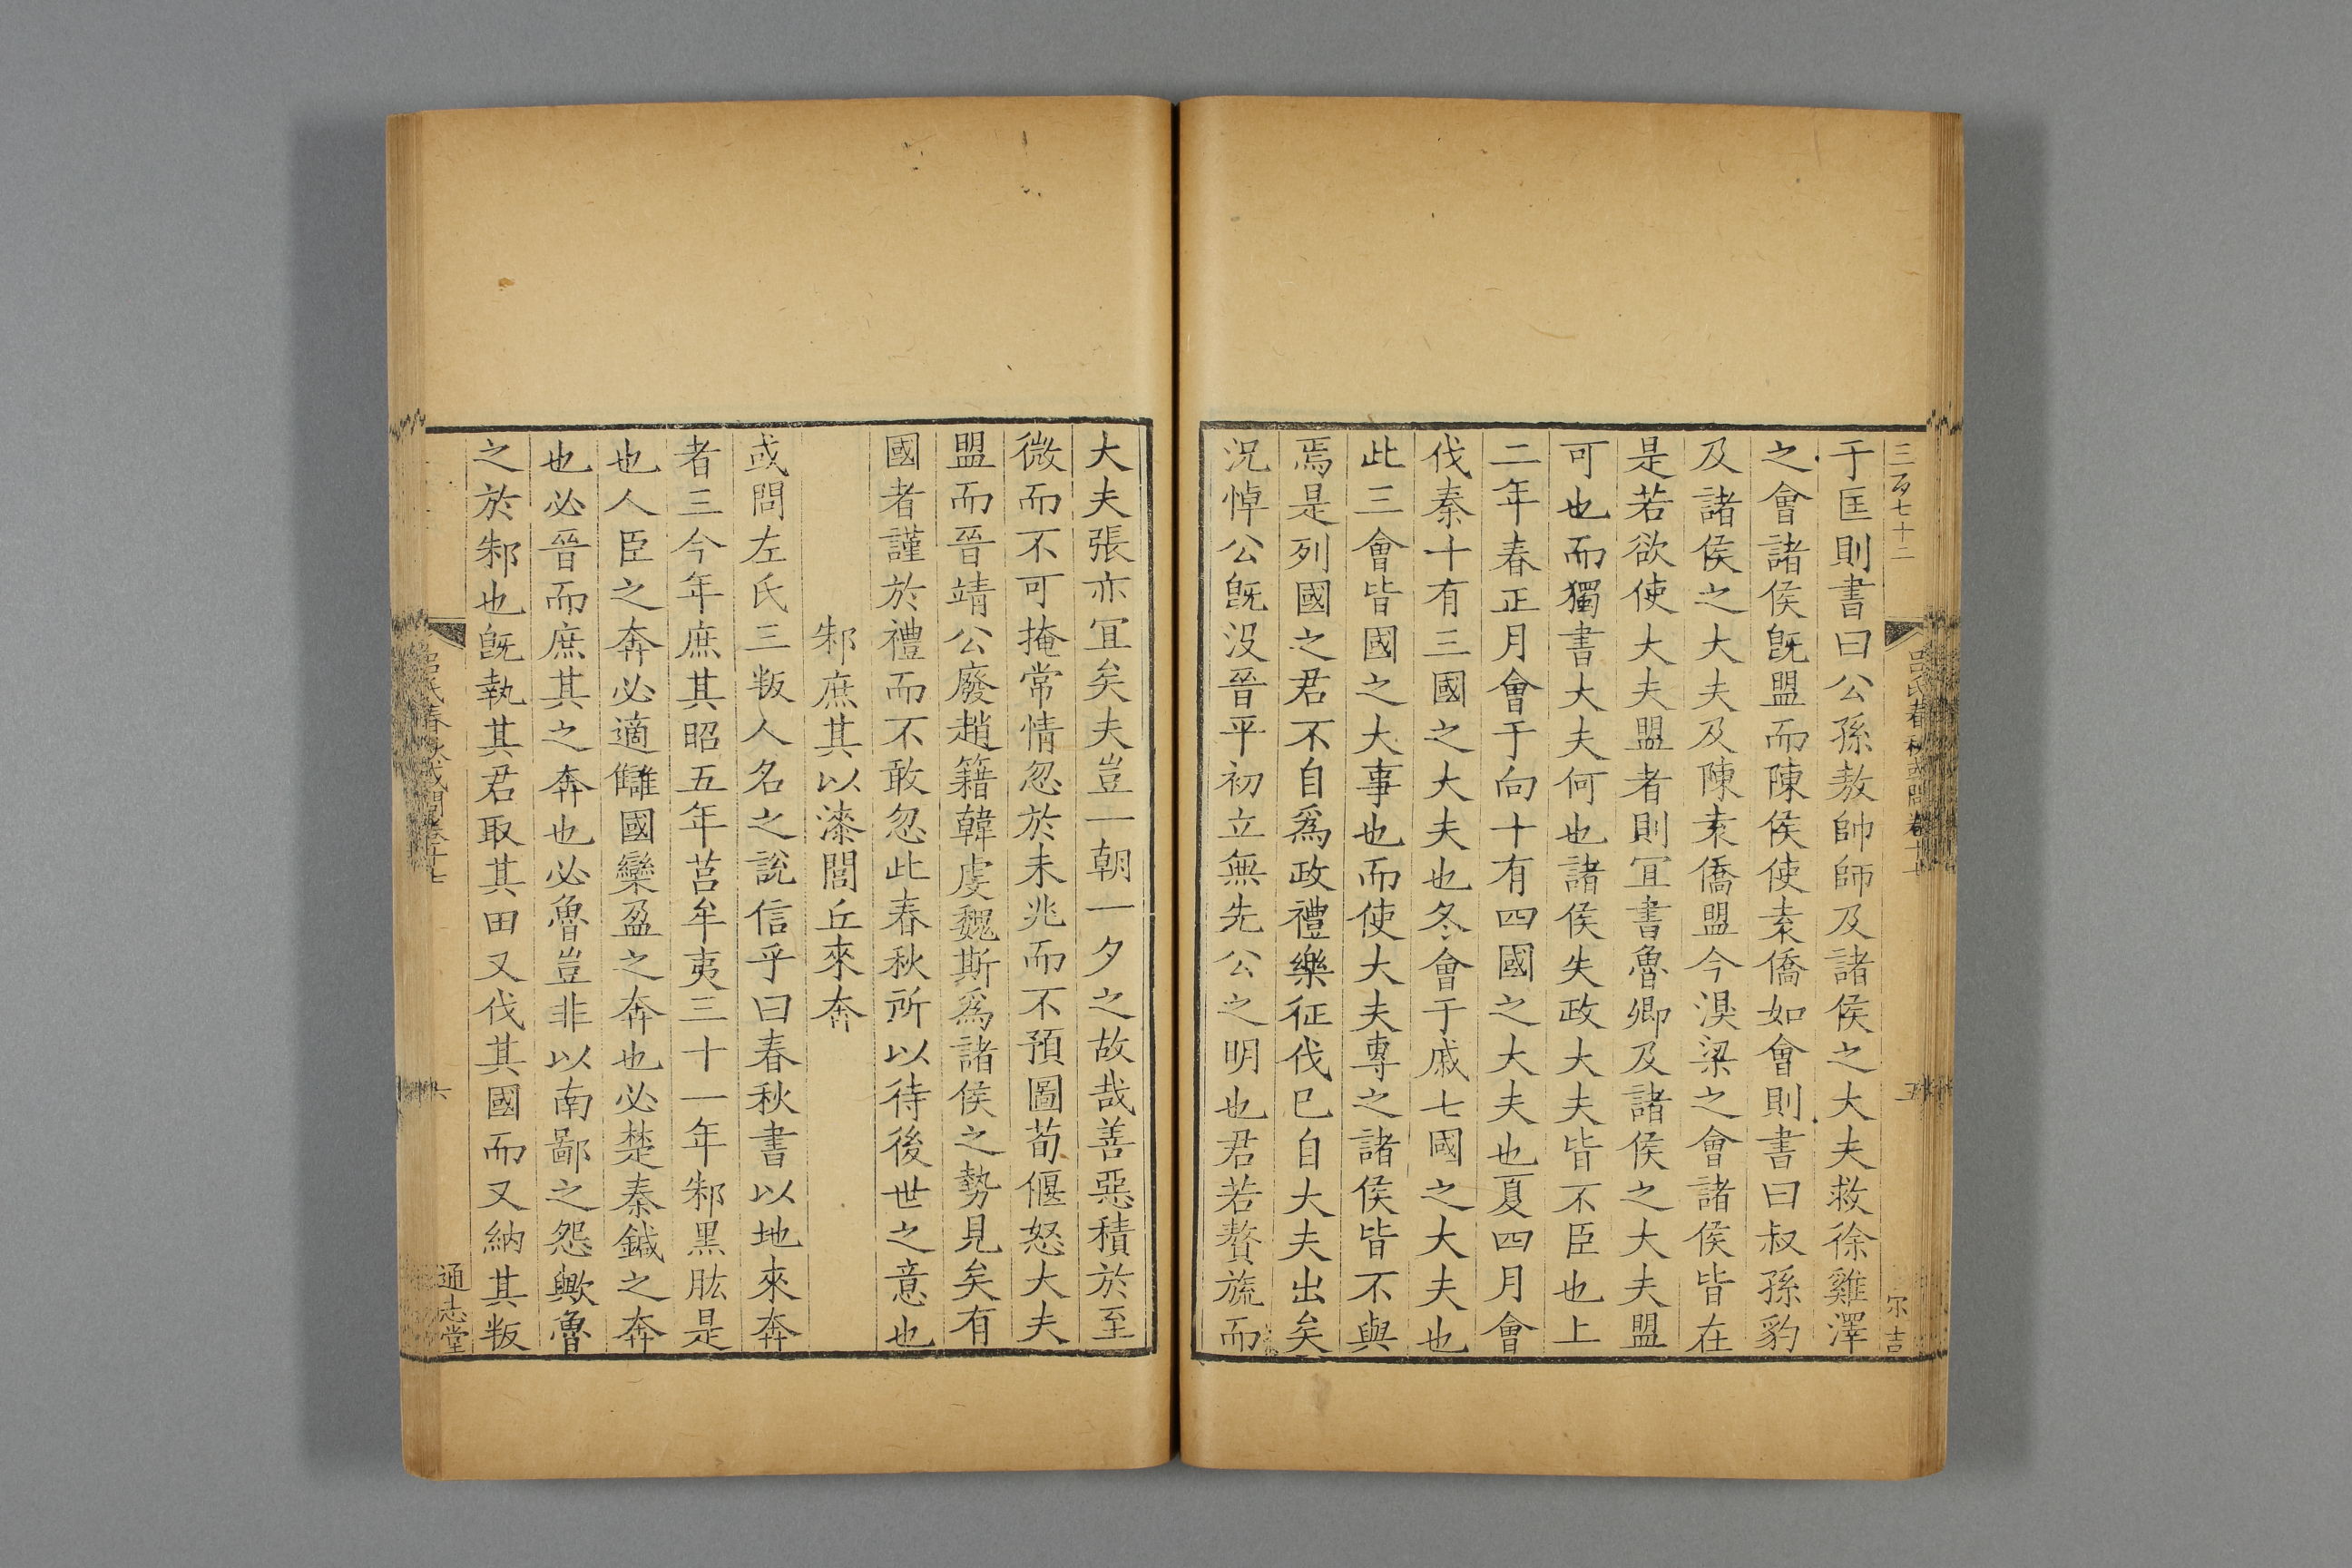 三百七十二
于匡則書曰公孫敖帥師及諸侯之大夫救徐雞澤
之會諸侯旣盟而陳侯使袁僑如會則書曰叔孫豹
及諸侯之大夫及陳袁僑盟今湨梁之會諸侯皆在
是若欲使大夫盟者則冝書魯卿及諸侯之大夫盟
可也而獨書大夫何也諸侯失政大夫皆不臣也上
二年春正月會于向十有四國之大夫也夏四月會
伐秦十有三國之大夫也冬會于戚七國之大夫也
此三會皆國之大事也而使大夫專之諸侯皆不與
焉是列國之君不自爲政禮樂征伐巳自大夫出矣
況悼公旣没晉平初立無先公之明也君若贅旒而
大夫張亦冝矣夫豈一朝一夕之故哉善惡積於至
微而不可掩常情忽於未兆而不預圖荀偃怒大夫
盟而晉靖公廢趙籍韓虔魏斯爲諸侯之勢見矣有
國者謹於禮而不敢忽此春秋所以待後世之意也
邾庶其以漆閭丘來奔
或問左氏三叛人名之說信乎曰春秋書以地來奔
者三今年庶其昭五年莒牟夷三十一年邾黑肱是
也人臣之奔必適讎國欒盈之奔也必楚秦鍼之奔
也必晉而庶其之奔也必魯豈非以南鄙之怨歟魯
之於邾也旣執其君取其田又伐其國而又納其叛
呂氏春秋或問卷十七
通志堂